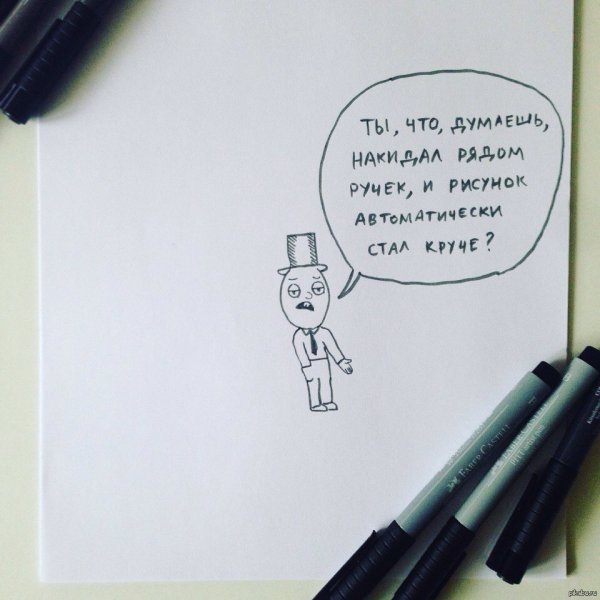 ТЫ, ЧТО, ДУМАЕШЬ,
НАКИДАЛ РЯДОМ
РУЧЕК, И РИСУНОК
АВТОМАТИЧЕСКИ
СТАЛ КРУЧЕ?
FABER-CASTELL
FABER-CASTELL
pikabu.ru